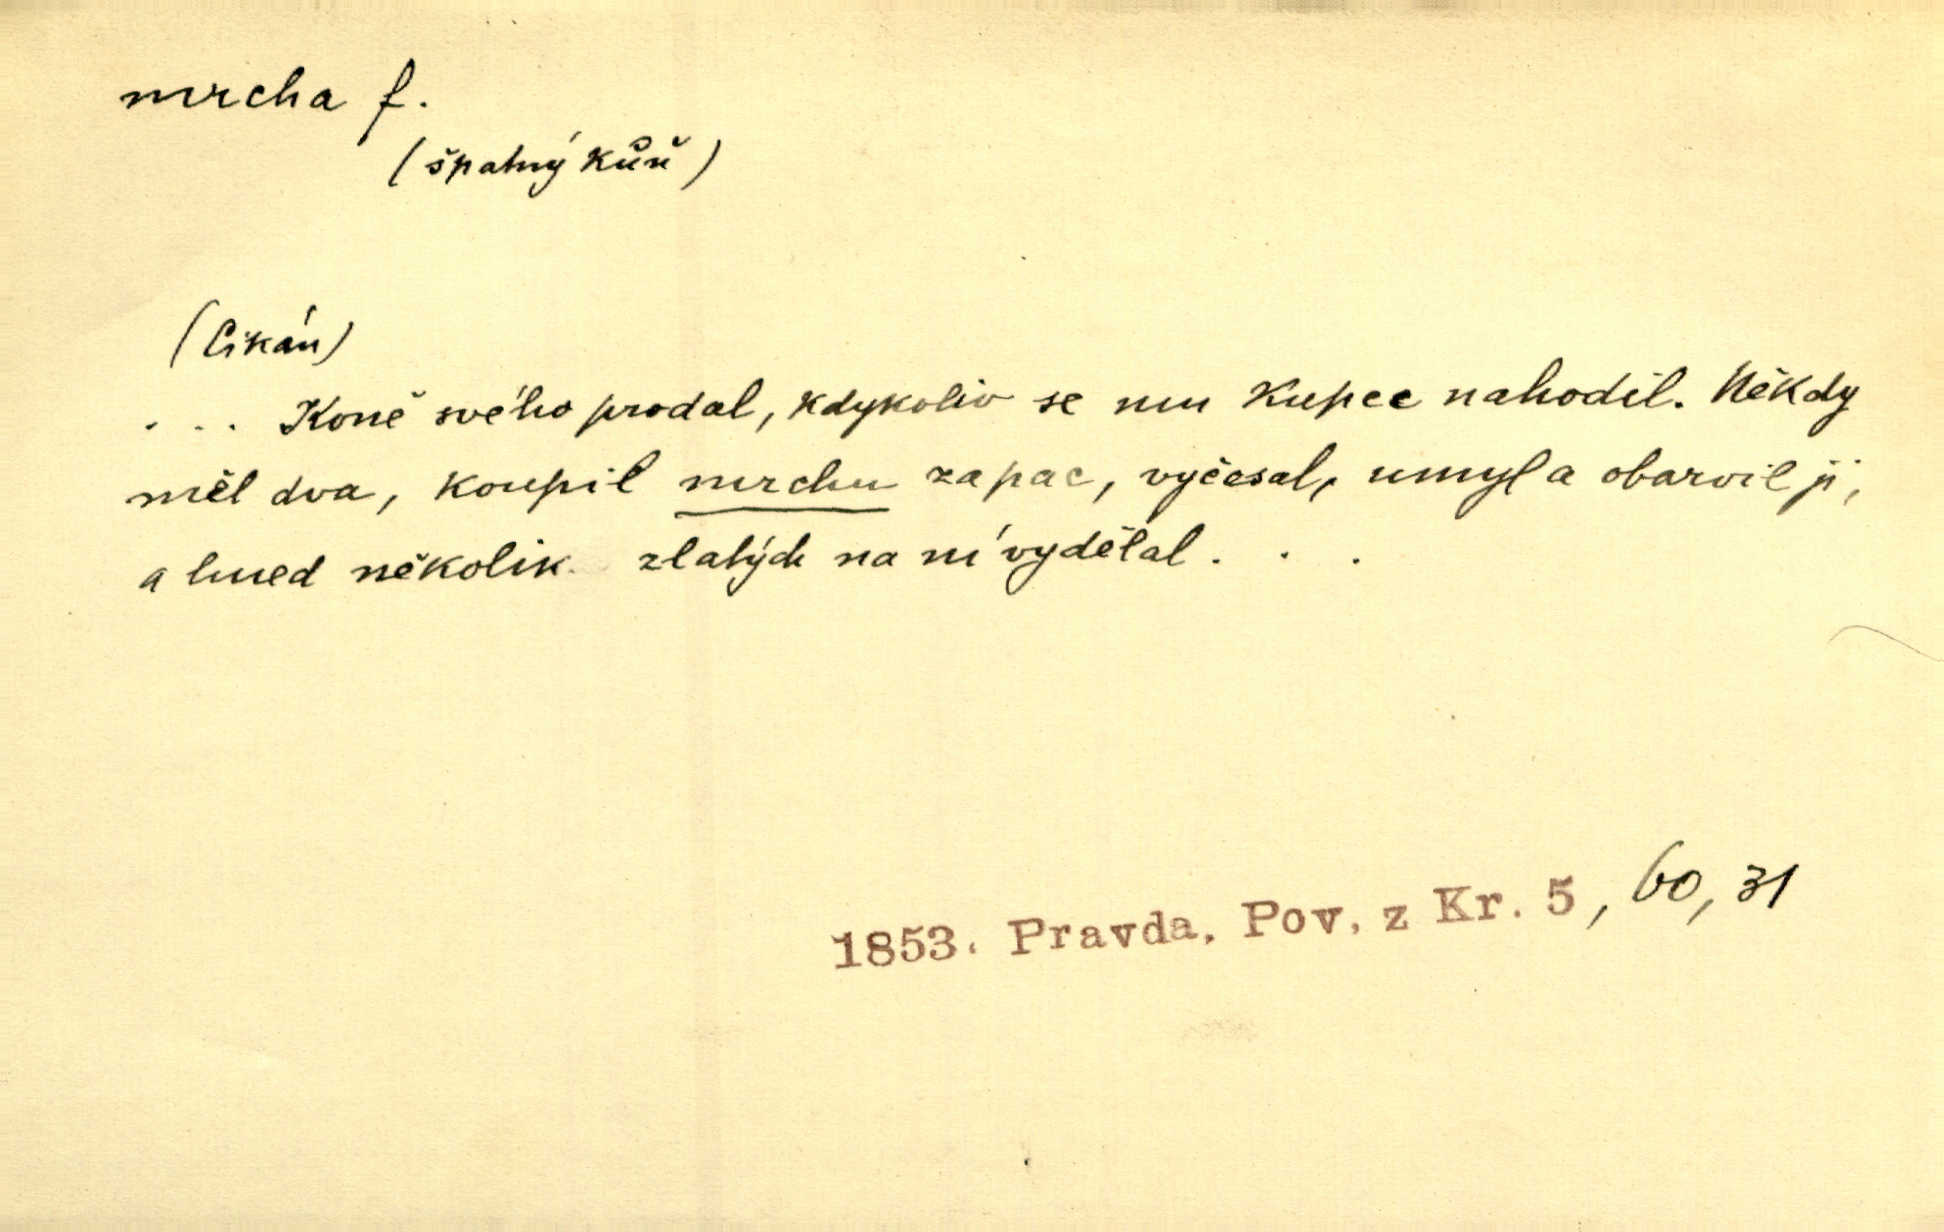 mrcha f.
(špatný kůň)
(Cikán)
... Koně svého prodal, kdykoliv se mu kupec nahodil. Někdy
měl dva, koupil mrchu zapac, vyčesal, umyl a obarvil ji,
a hned několik zlatých na ní vydělal . . .
1853. Pravda, Pov. z Kr. 5, 60, 31